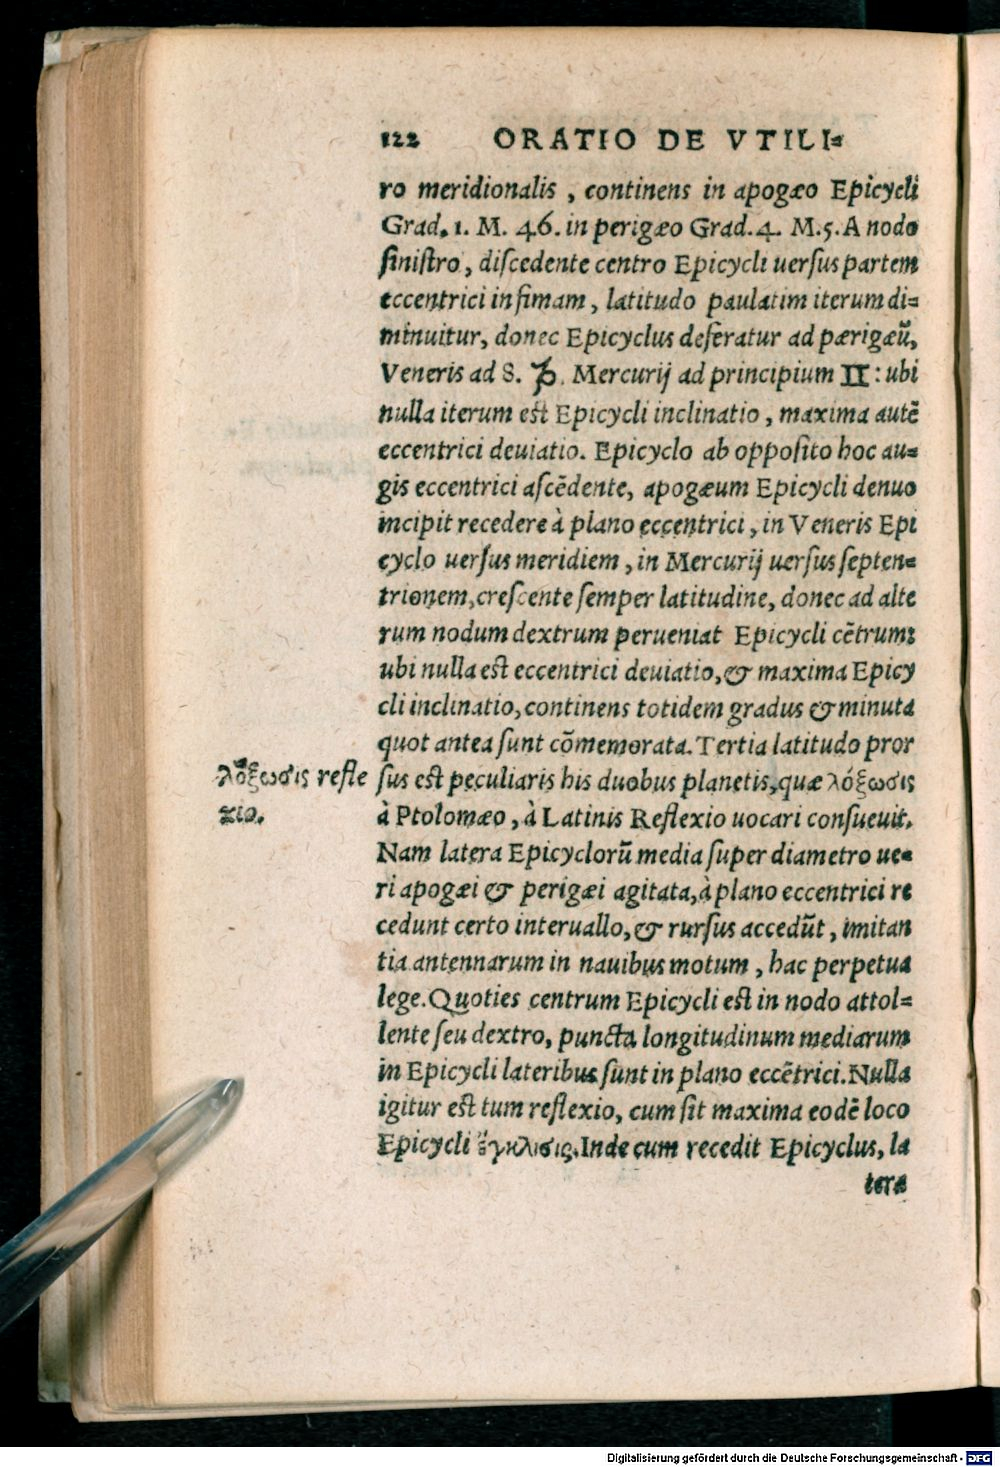 122 ORATIO DE VTILI-
ro meridionalis, continens in apogæo Epicycli
Grad. 1. M. 46. in perigæo Grad. 4. M. 5. A nodo
ſiniſtro, diſcedente centro Epicycli uerſus partem
eccentrici infimam, latitudo paulatim iterum di-
minuitur, donec Epicyclus deferatur ad pærigæũ,
Veneris ad 8. ♑. Mercurij ad principium ♊: ubi
nulla iterum eſt Epicycli inclinatio, maxima autẽ
eccentrici deuiatio. Epicyclo ab oppoſito hoc au-
gis eccentrici aſcẽdente, apogæum Epicycli denuo
incipit recedere à plano eccentrici, in Veneris Epi
cyclo uerſus meridiem, in Mercurij uerſus ſepten-
trionem, creſcente ſemper latitudine, donec ad alte
rum nodum dextrum perueniat Epicycli cẽtrum:
ubi nulla eſt eccentrici deuiatio, & maxima Epicy
cli inclinatio, continens totidem gradus & minuta
quot antea ſunt cõmemorata. Tertia latitudo pror
ſus eſt peculiaris his duobus planetis, quæ λόξωσις
à Ptolomæo, à Latinis Reflexio uocari conſueuit.
λόξωσις refle
xio.
Nam latera Epicyclorũ media ſuper diametro ue-
ri apogæi & perigæi agitata, à plano eccentrici re
cedunt certo interuallo, & rurſus accedũt, imitan
tia antennarum in nauibus motum, hac perpetua
lege. Quoties centrum Epicycli eſt in nodo attol-
lente ſeu dextro, puncta longitudinum mediarum
in Epicycli lateribus ſunt in plano eccẽtrici. Nulla
igitur eſt tum reflexio, cum ſit maxima eodẽ loco
Epicycli ἔγκλισις. Inde cum recedit Epicyclus, la
tera
Digitalisierung gefördert durch die Deutsche Forschungsgemeinschaft - DFG